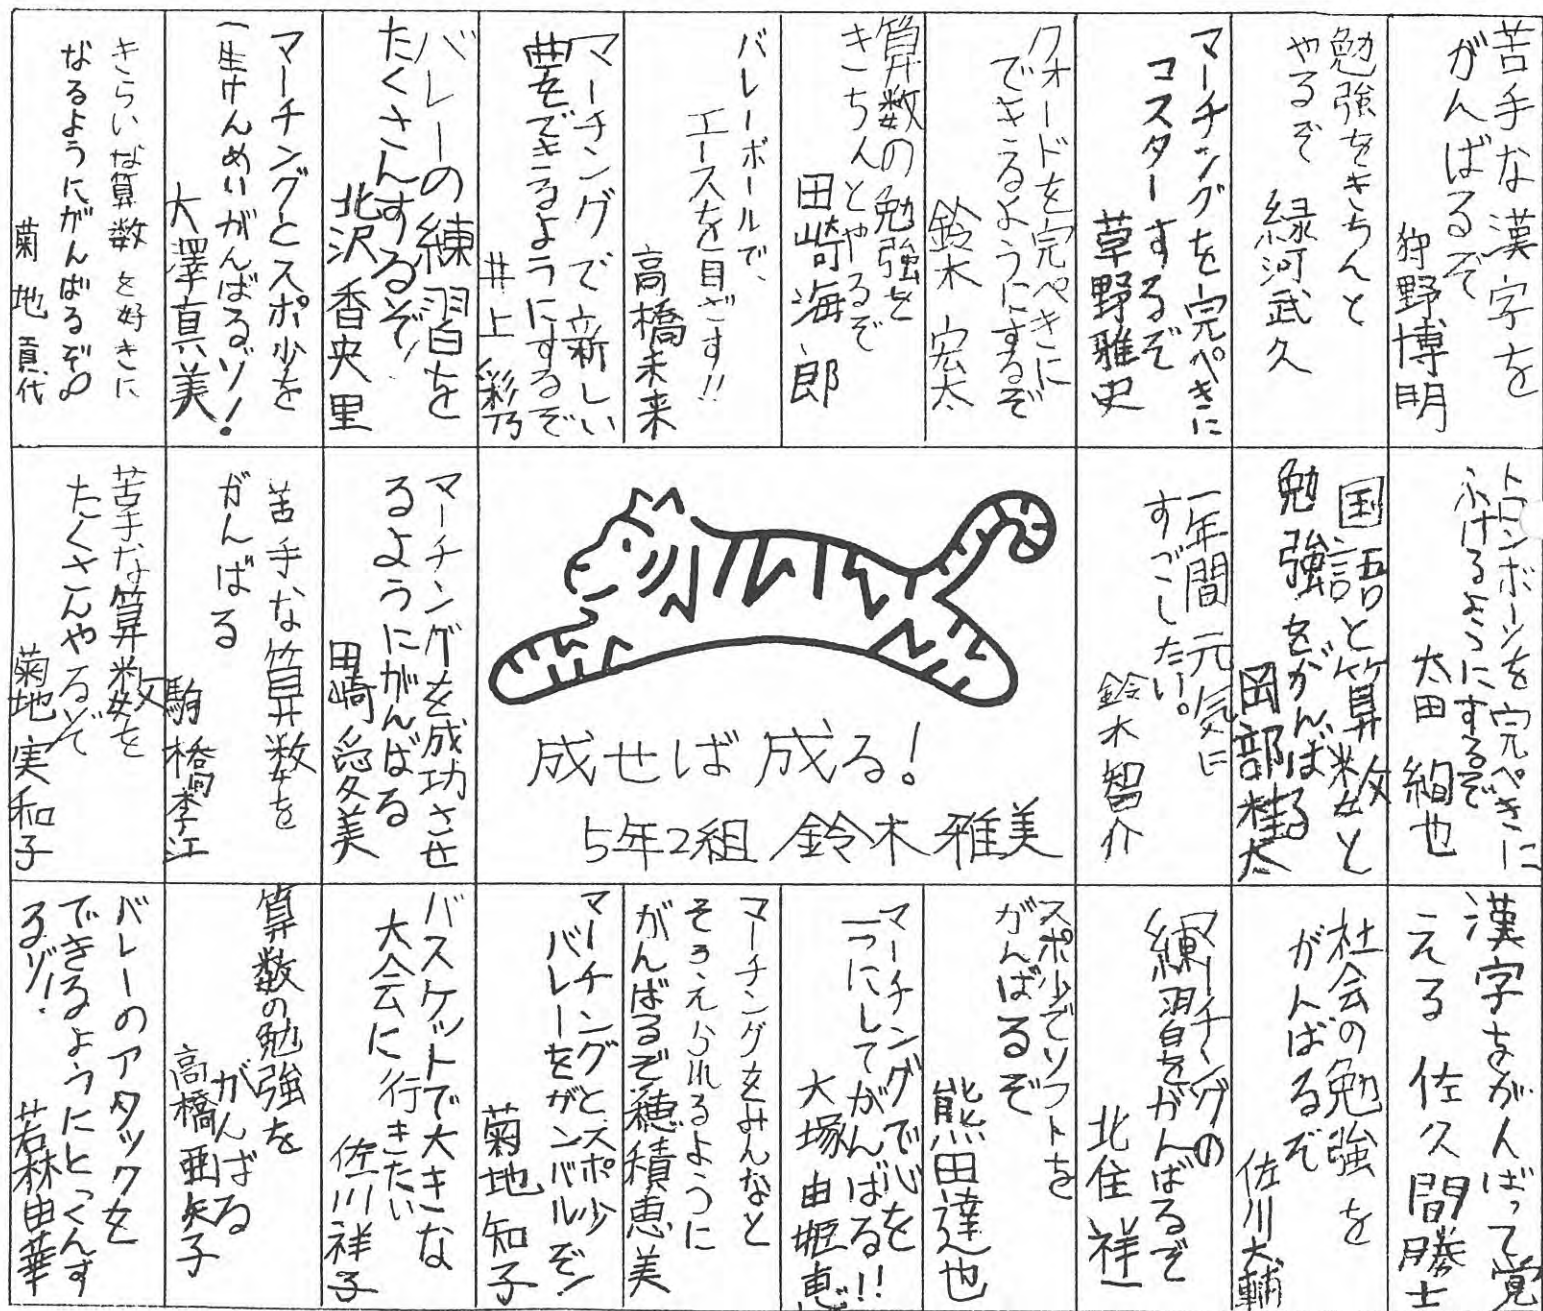 苦手な漢字を
がんばるぞ
狩野博明
勉強をきちんと
やるぞ 緑河武久
マーチングを完ぺきに
コスターするぞ
草野雅史
クォードを完ぺきに
できるようにするぞ
鈴木 宏太
算数の勉強を
きちんとやるぞ
田崎海郎
バレーボールで、
エースを目ざす!!
高橋未来
マーチングで新しい
曲をできるようにするぞ
井上 彩乃
バレーの練習を
たくさんするぞ!
北沢香央里
マーチングとスポ少を
一生けんめいがんばるゾ!
大澤真美
きらいな算数を好きに
なるようにがんばるぞ
菊地 貢代
トロンボーンを完ぺきに
ふけるようにするぞ
太田 絢也
国語と算数と
勉強をがんばる
岡部桂太
一年間元気に
すごしたい。
鈴木智介
成せば成る!
5年2組 鈴木雅美
マーチングを成功させ
るようにがんばる
田崎愛美
苦手な算数を
がんばる
駒橋李江
苦手な算数を
たくさんやるぞ
菊地実和子
漢字をがんばって覚
える 佐久間勝士
社会の勉強を
がんばるぞ
佐川大輔
マーチングの
練習をがんばるぞ
北住祥一
スポ少でソフトを
がんばるぞ
熊田達也
マーチングで心を
一つにしてがんばる!!
大塚由姫恵
マーチングをみんなと
そろえられるように
がんばるぞ 穂積恵美
マーチングとスポ少
バレーをガンバルぞ!
菊地知子
バスケットで大きな
大会に行きたい
佐川祥子
算数の勉強を
がんばる
高橋亜矢子
バレーのアタックを
できるようにとっくんす
るゾ! 若林由華